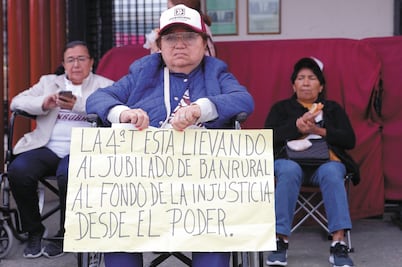 LA 4ªT ESTÁ LLEVANDO
AL JUBILADO DE BANRURAL
AL FONDO DE LA INJUSTICIA
DESDE EL PODER.